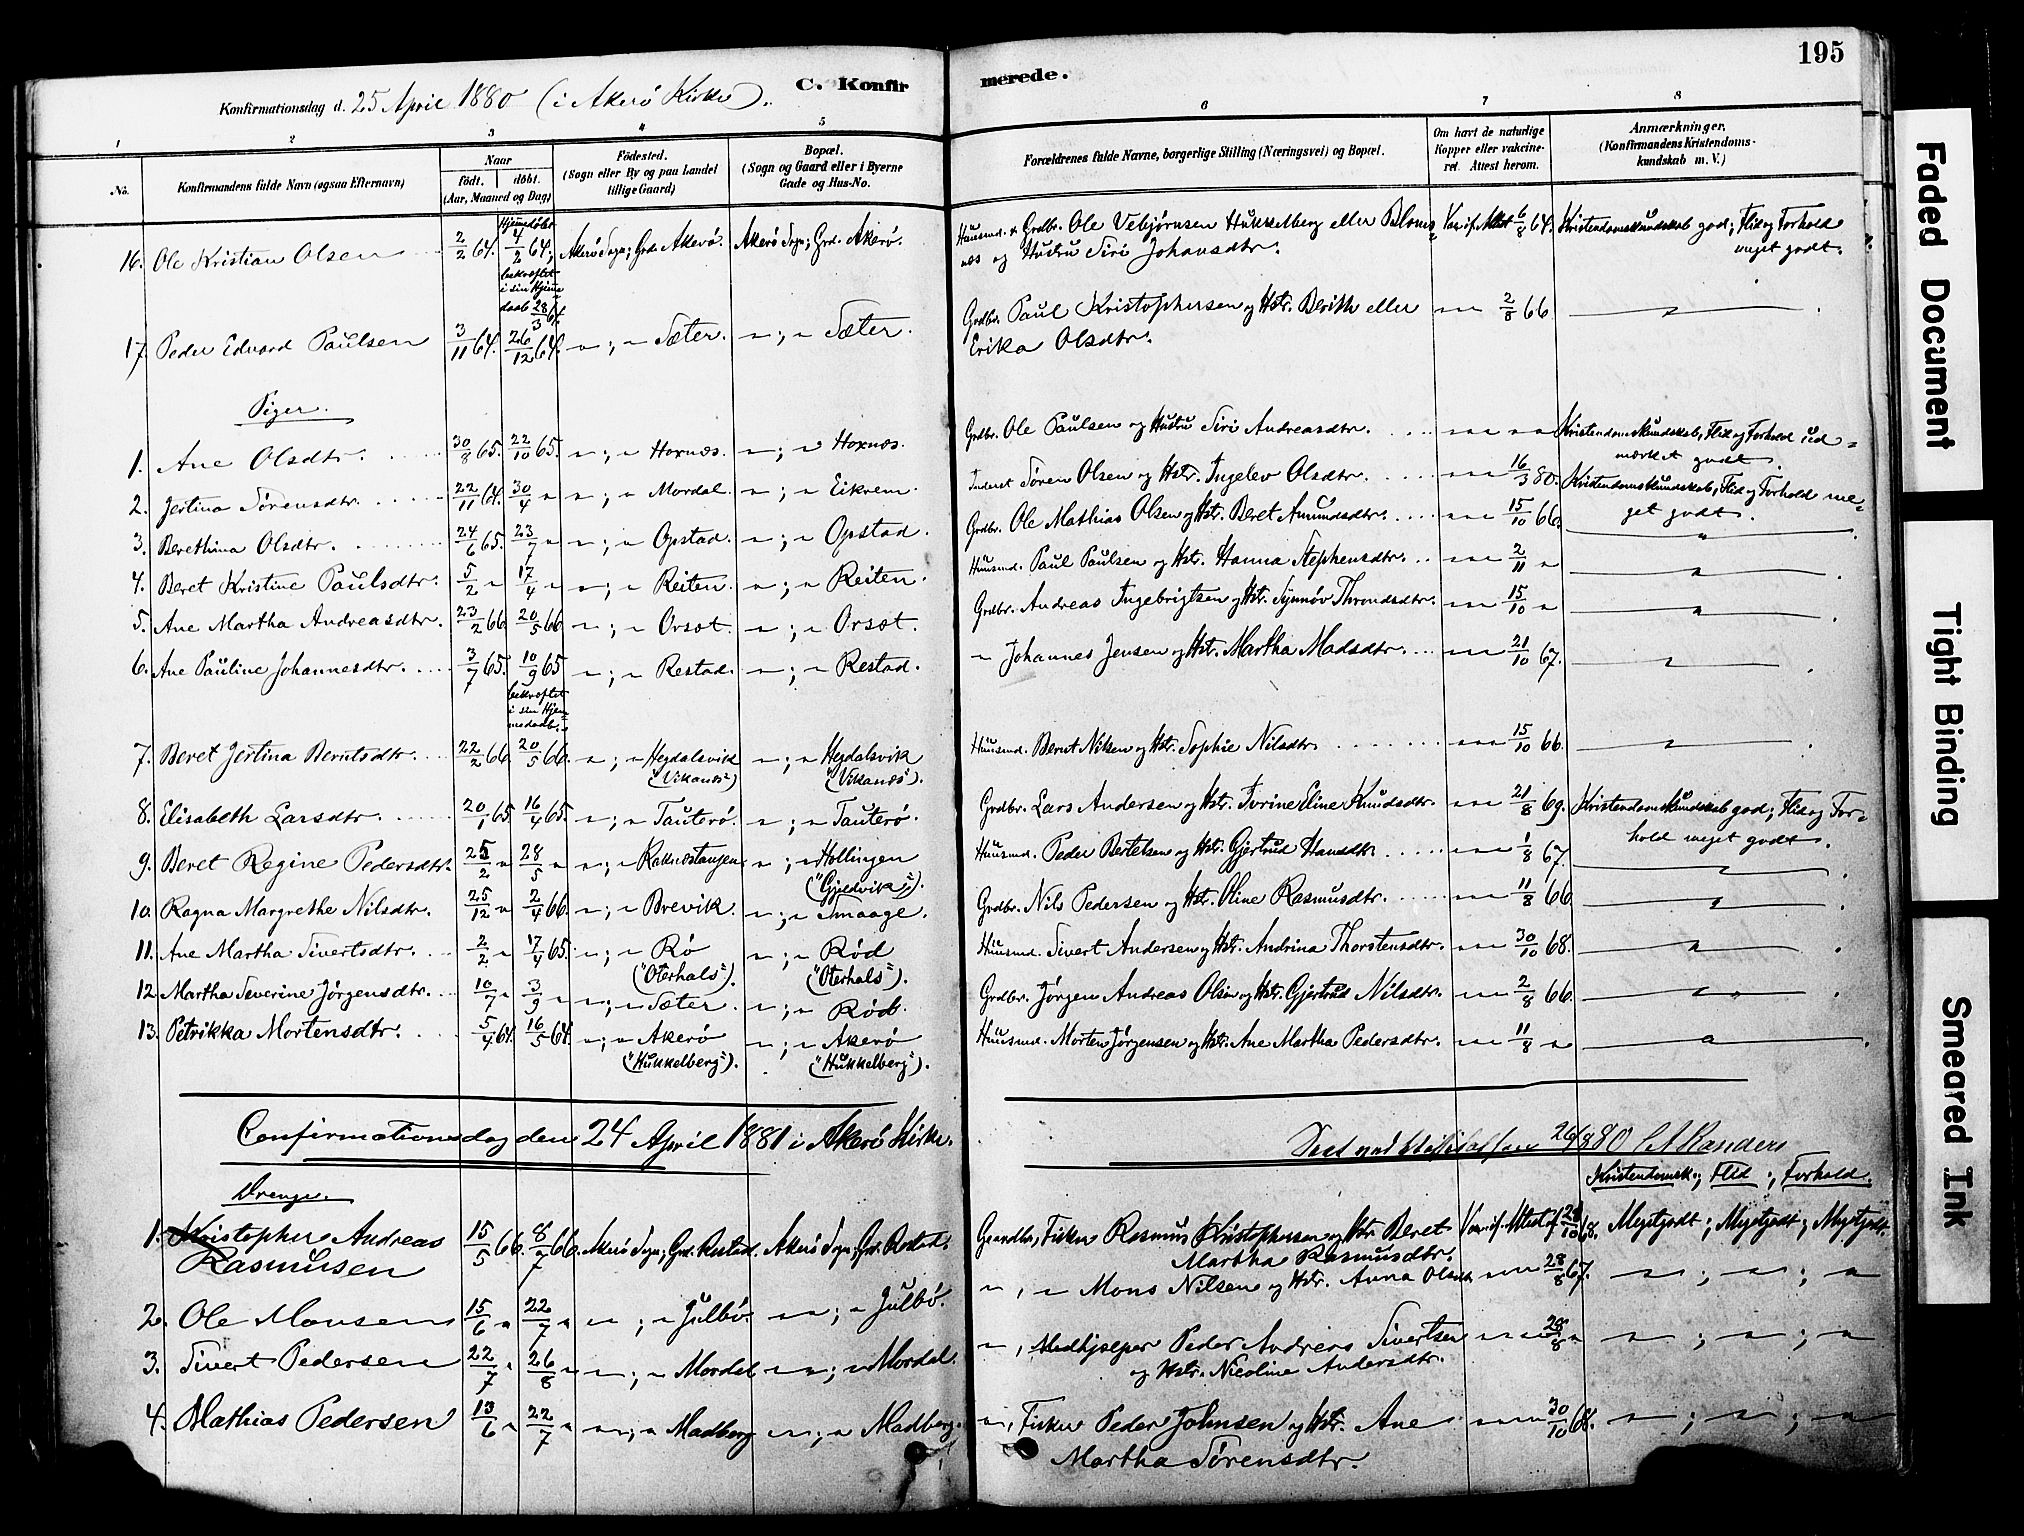 195
C. Konfirmerede.
Konfirmationsdag d. 25 April 1880 (i Akerö Kirke).
1 2 3 4 5 6 7 8
No. Konfirmandens fulde Navn (ogsaa Efternavn) Naar födt. döbt. (Aar, Maaned og Dag) Födested. (Sogn eller By og paa Landet tillige Gaard) Bopæl. (Sogn og Gaard eller i Byerne Gade og Hus-No.) Forældrenes fulde Navne, borgerlige Stilling (Næringsvei) og Bopæl. Om havt de naturlige Kopper eller vakcineret. Attest herom. Anmærkninger. (Konfirmandens Kristendomskundskab m. V.)
16. Ole Kristian Olsen 2/2 64. Hjemmedøbt 4/2 64; bekræftet i sin Hjemmedaab 28/3 64. Akerö Sogn; Grd. Akerö. Akerö Sogn; Grd. Akerö. Huusmd. & Grdbr. Ole Vebjörnsen Hukkelberg eller Blomsnæs og Hustru Siri Johansdtr. Vac. if. Attest 6/8 64. Kristendomskundskab god; Flid og Forhold meget godt.
17. Peder Edvard Paulsen 3/11 64. 26/12 64. " ; " Sæter. " ; " Sæter. Grdbr. Paul Kristophersen og Hstr. Berithe eller Erika Olsdtr. " " 2/8 66. "
Piger.
1. Ane Olsdtr. 30/8 65. 22/10 65. " ; " Hoxnæs. " ; " Hoxnæs. Grdbr. Ole Paulsen og Hustru Siri Andreasdtr. " " " " Kristendomskundskab, Flid og Forhold udmærket godt.
2. Jertina Sörensdtr. 22/11 64. 30/4 " " ; " Mordal. " ; " Eikrem. Inderst Sören Olsen og Hstr. Ingelev Olsdtr. " " 16/3 80. Kristendomskundskab, Flid og Forhold meget godt.
3. Berethina Olsdtr. 24/6 65. 23/7 " " ; " Opstad. " ; " Opstad. Grdbr. Ole Mathias Olsen og Hstr. Beret Amundsdtr. " " 15/10 66. "
4. Beret Kristine Paulsdtr. 5/2 " 17/4 " " ; " Reiten. " ; " Reiten. Huusmd. Paul Paulsen og Hstr. Hanna Stephensdtr. " " 2/11 " "
5. Ane Martha Andreasdtr. 23/2 66 20/5 66 " ; " Orsæt. " ; " Orsæt. Grdbr. Andreas Ingebrigtsen og Hstr. Synnöv Throndsdtr. " " 15/10 " "
6. Ane Pauline Johannesdtr. 3/7 65. 10/9 65 " ; " Restad. " ; " Restad. " Johannes Jensen og Hstr. Martha Madsdtr. " " 21/10 67. "
7. Beret Jertina Berntsdtr. 22/2 66. bekræftet i sin Hjemmedaab 20/5 66. " ; " Hegdalsvik ("Vikanæs") " ; " Hegdalsvik ("Vikanæs"). Huusmd. Bernt Nilsen og Hstr. Sophie Nilsdtr. " " 15/10 66. "
8. Elisabeth Larsdtr. 20/1 65. 16/4 65. " ; " Tauterö. " ; " Tauterö. Grdbr. Lars Andersen og Hstr. Eline Knudsdtr. " " 21/8 69. Kristendomskundskab god; Flid og Forhold meget godt.
9. Beret Regine Pedersdtr. 25/2 " 28/5 " " ; " Raknestangen " ; " Hollingen ("Gjeldvik"). Huusmd. Peder Bertelsen og Hstr. Gjertrud Hansdtr. " " 1/8 67. "
10. Ragna Margrethe Nilsdtr. 25/12 " 2/4 66. " ; " Brevik. " ; " Smaage. Grdbr. Nils Pedersen og Hstr. Oline Rasmusdtr. " " 11/8 66. "
11. Ane Martha Sivertsdtr. 2/2 " 17/4 65. " ; " Rö ("Oterhals"). " ; " Röd ("Oterhals"). Huusmd. Sivert Andersen og Hstr. Andrina Thorstensdtr. " " 30/10 68. "
12. Martha Severine Jörgensdtr. 10/7 " 3/9 " " ; " Sæter. " ; " Röd. Grdbr. Jörgen Andreas Olsen og Hstr. Gjertrud Nilsdtr. " " 2/8 66. "
13. Petrikka Mortensdtr. 5/4 64. 16/5 64. " ; " Akerö ("Hukkelberg"). " ; " Akerö ("Hukkelberg"). Huusmd. Morten Jörgensen og Hstr. Ane Martha Pedersdtr. " " 11/8 " "
Confirmationsdag den 24 April 1881 i Akerö Kirke.
Seet ved 80 Randers
Drenge. Kristendomsk.; Flid; Forhold.
1. Kristopher Andreas Rasmusen 15/5 66. 8/7 66. Akerö Sogn; Grd. Restad. Akerö Sogn; Grd. Restad. Grandbr., Fisker Rasmus Kristophersen og Hstr Beret Martha Rasmusdtr. Vac. if. Attest af 28/10 68. Megetgodt; Megetgodt; Megetgodt.
2. Ole Monsen 15/6 " 22/7 " " ; " Julbö. " ; " Julbö. " , " Mons Nilsen og Hstr. Anna Olsdtr " " 28/8 67. " ; " ; "
3. Sivert Pedersen 22/7 " 26/8 " " ; " Mordal " ; " Mordal. " , Medhjælper Peder Andreas Sivertsen og Hstr. Nicoline Andersdtr. " " 28/8 " " ; " ; "
4. Mathias Pedersen 13/6 " 22/7 " " ; " Madberg " ; " Madberg. " , Fisker Peder Johnsen og Hstr. Ane Martha Sörensdtr. " " 30/10 68. " ; " ; "
Faded Document
Tight Binding
Smeared Ink